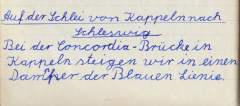 Auf der Schlei von Kappeln nach
Schleswig
Bei der Concordia-Brücke in
Kappeln steigen wir in einen
Dampfer der Blauen Lienie.